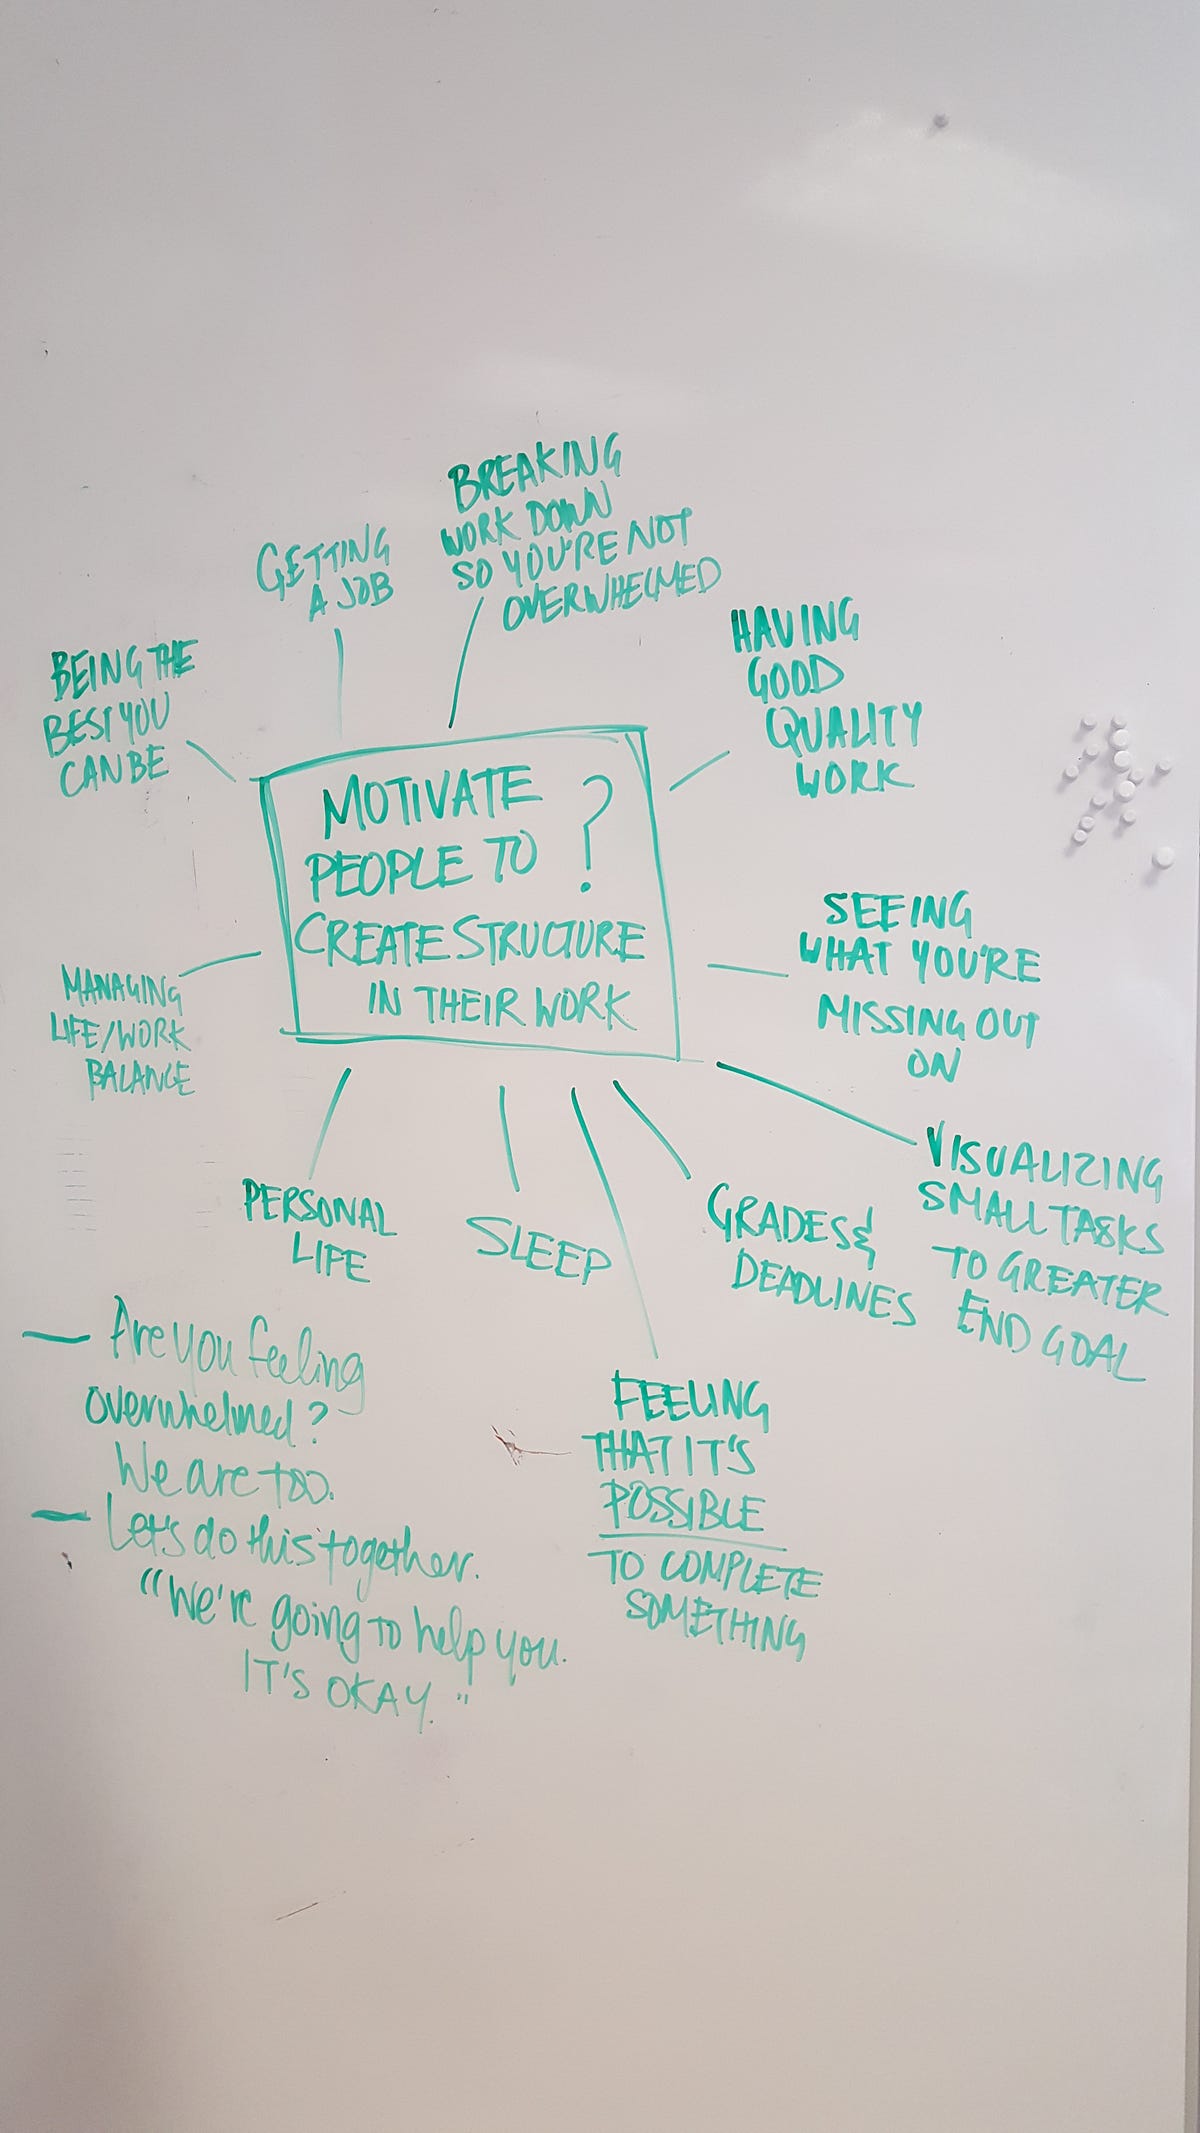 BREAKING
WORK DOWN
SO YOU'RE NOT
OVERWHELMED
GETTING
A JOB
HAVING
GOOD
QUALITY
WORK
BEING THE
BEST YOU
CAN BE
MOTIVATE
PEOPLE TO ?
CREATE STRUCTURE
IN THEIR WORK
SEEING
WHAT YOU'RE
MISSING OUT
ON
MANAGING
LIFE/WORK
BALANCE
VISUALIZING
SMALL TASKS
TO GREATER
END GOAL
PERSONAL
LIFE
SLEEP
GRADES &
DEADLINES
FEELING
THAT IT'S
POSSIBLE
TO COMPLETE
SOMETHING
— Are you feeling
overwhelmed?
We are too.
— Let's do this together.
"We're going to help you.
IT'S OKAY."